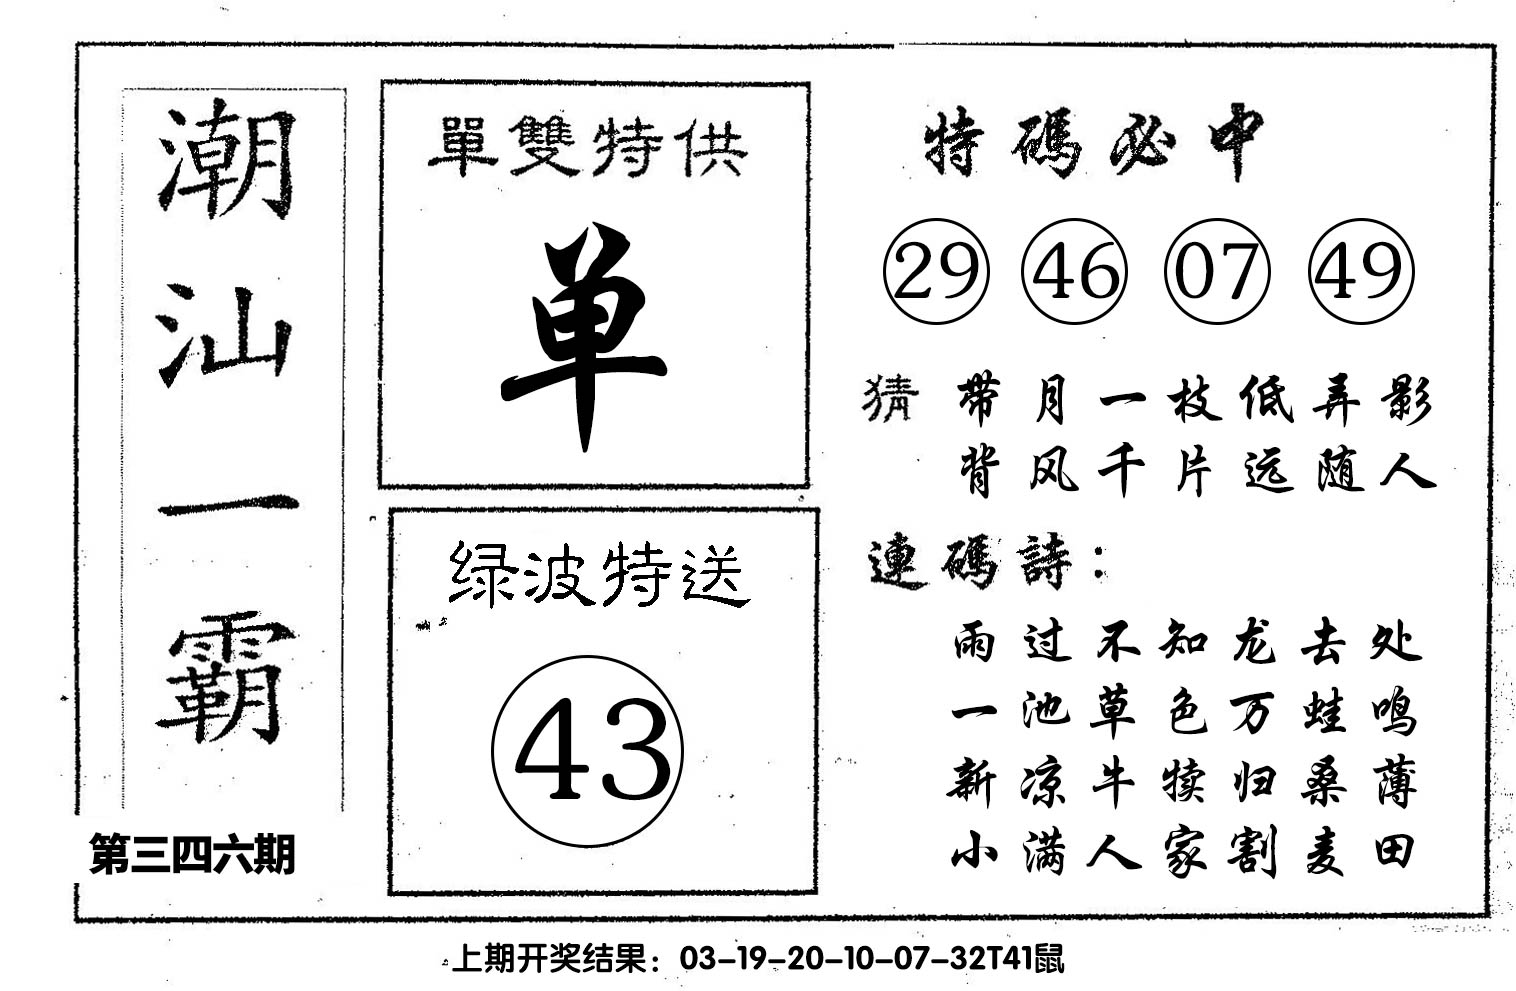 潮汕一霸
第三四六期
單雙特供
单
绿波特送
43
特碼必中
29 46 07 49
猜 带月一枝低弄影
背风千片远随人
連碼詩：
雨过不知龙去处
一池草色万蛙鸣
新凉牛犊归桑薄
小满人家割麦田
上期开奖结果：03-19-20-10-07-32T41鼠